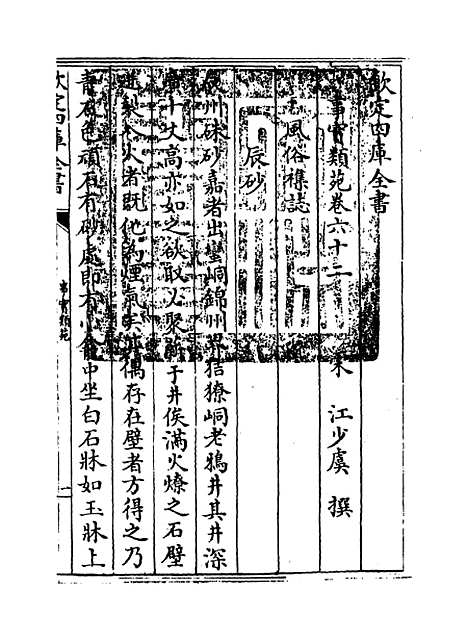 欽定四庫全書
事實類苑卷六十二
宋 江少虞 撰
風俗雜誌
辰砂
辰州硃砂嘉者出蠻峒錦州界猺獠峒老鴉井其井深
十丈高亦如之欲取必聚薪于井俟滿火燎之石壁
裂入火者既化為煙氣矣其偶存在壁者方得之乃
青石色頑石有砂處即有小龕中坐白石牀如玉牀上
欽定四庫全書
事實類苑
一